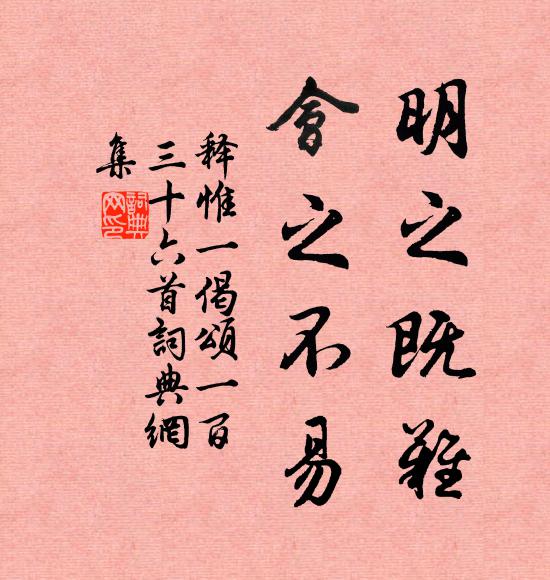 明之既难
會之不易
释惟一偈頌一百
三十六首詞典網
集
詞典網印